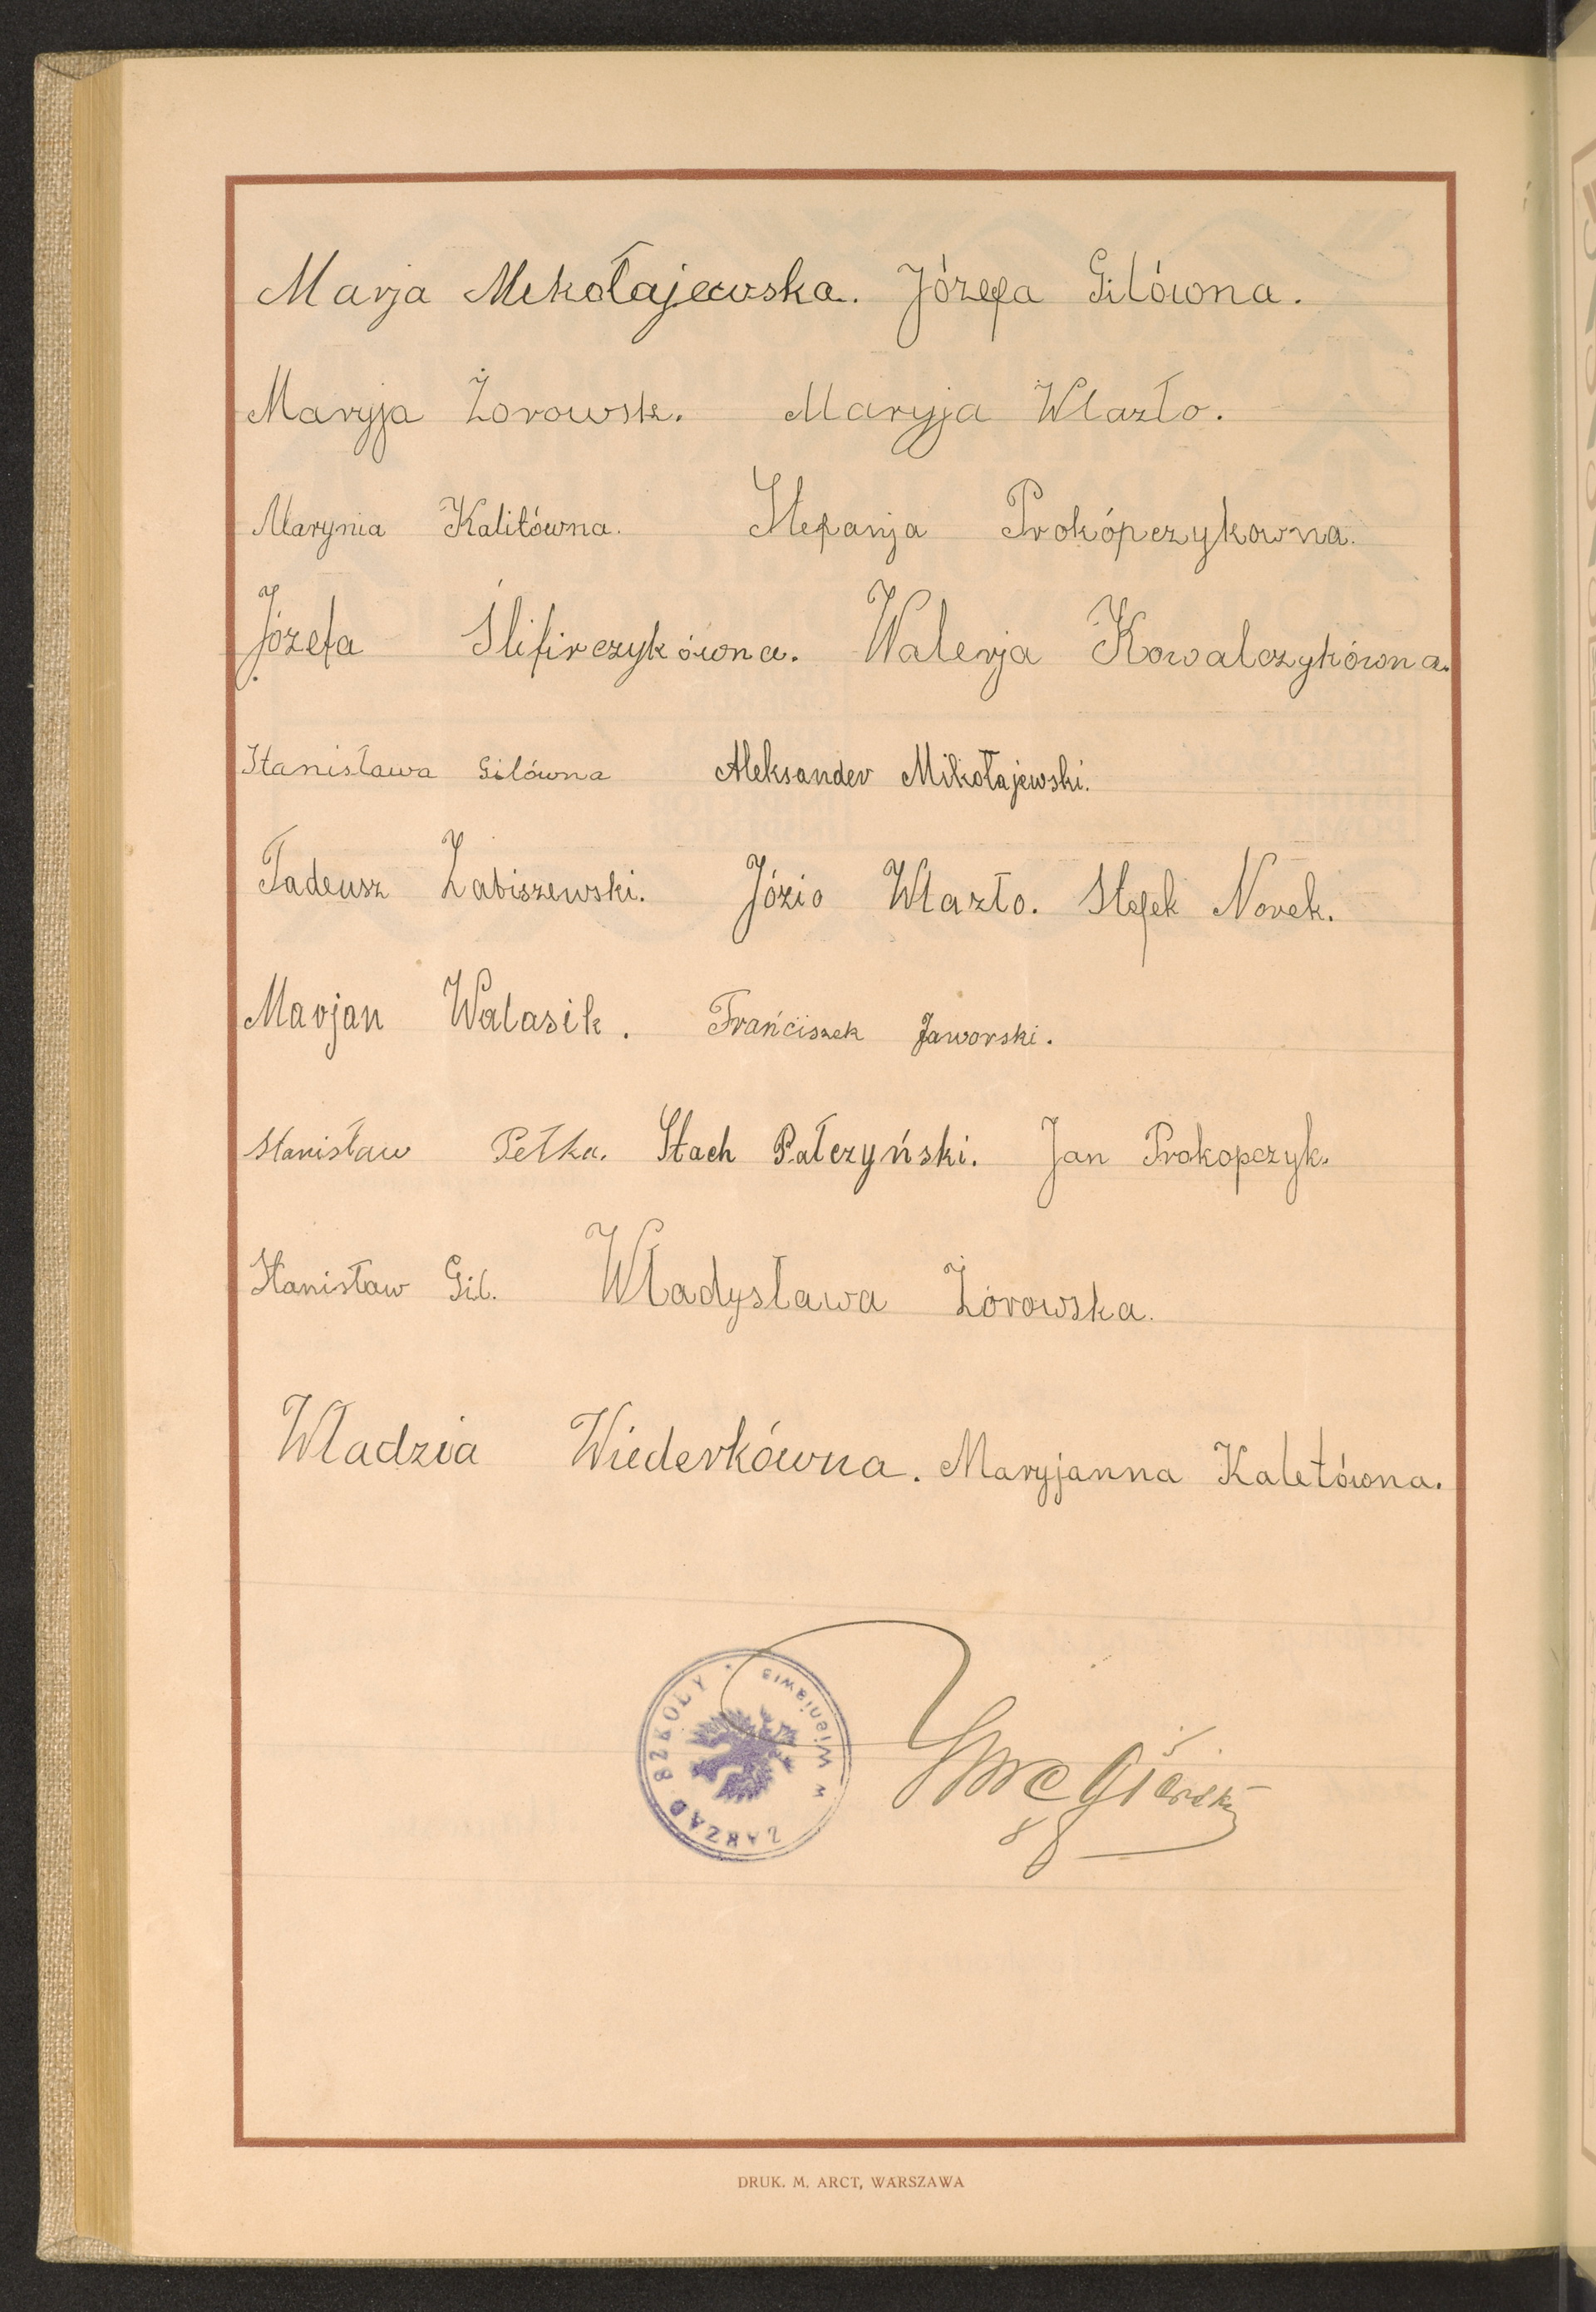 Marja Mekołajewska. Józefa Gilówna.
Maryja Żorowsk. Maryja Wlazło.
Marynia Kalitówna. Stefanja Prokópczykowna.
Józefa Ślifirczykówna. Walerja Kowalczykówna.
Stanisława Gilówna Aleksander Mikołajewski.
Tadeusz Łabiszewski. Józio Wlazło. Stefek Norek.
Marjan Walasik. Frańciszek Jaworski.
Stanisław Pełka. Stach Pałczyński. Jan Prokopczyk.
Stanisław Gil. Władysława Żórowska.
Wladzia Wiederkówna. Maryjanna Kaletówna.
ZARZĄD SZKOŁY • w Wieniawie
DRUK. M. ARCT, WARSZAWA